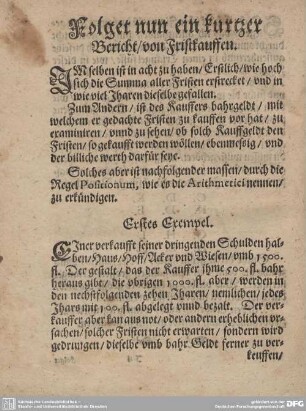 Folget nun ein kurtzer
Bericht / von Fristkauffen.
IM selben ist in acht zu haben / Erstlich / wie hoch
sich die Summa aller Fristen erstrecket / vnd in
wie viel Jharen dieselbe gefallen.
Zum Andern / ist des Kauffers bahrgeldt / mit
welchem er gedachte Fristen zu kauffen vor hat / zu
examiniren / vnnd zu sehen / ob solch Kauffgeldt den
Fristen / so gekaufft werden wöllen / ebenmessig / vnd
der billiche werth darfür seye.
Solches aber ist nachfolgender massen / durch die
Regel Positionum, wie es die Arithmetici nennen /
zu erkündigen.
Erstes Exempel.
EIner verkaufft seiner dringenden Schulden hal-
ben / Hauß / Hoff / Aker vnd Wiesen / vmb 1500.
fl. Der gestalt / das der Kauffer ihme 500. fl. bahr
heraus gibt / die vbrigen 1000. fl. aber / werden in
den nechstfolgenden zehen Jharen / nemlichen / jedes
Jhars mit 100. fl. abgelegt vnnd bezalt. Der ver-
kauffer aber kan aus not / oder andern erheblichen vr-
sachen / solcher Fristen nicht erwarten / sondern wird
gedrungen / dieselbe vmb bahr Geldt ferner zu ver-
keuffen /